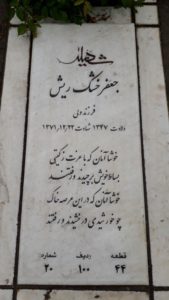 شهید
جعفر خشک ریش
فرزند ولی
ولادت ۱۳۴۷ شهادت ۱۳۷۱,۱۲,۲۲
خوشا آنان که با عزت ز گیتی
بساط خویش برچیدند و رفتند
خوشا آنان که در این عرصه خاک
چو خورشیدی درخشیدند و رفتند
قطعه ردیف شماره
۴۴ ۱۰۰ ۲۰